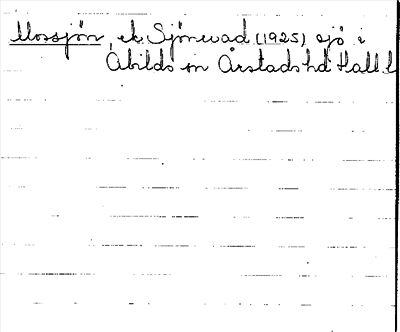 Mossjön, ek. Sjönevad (1925) sjö i
Abilds sn Årstads hd Hall. l